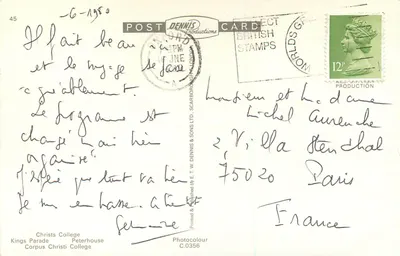 45
-6-1980
POST CARD
DENNIS
Productions
JUNE
COLLECT
BRITISH
STAMPS
WORLDS
12P
PRODUCTION
Il fait beau
et le voyage se passe
agréablement.
Le programme est
changé mais bien
organisé
J'espère que tout va bien
Je vous embrasse
Germaine
Monsieur et Madame
Michel
2, Villa Stendhal
75020 Paris
France
Printed & Published by E. T. W. DENNIS & SONS LTD. SCARBOROUGH
Christs College
Kings Parade Peterhouse
Corpus Christi College
Photocolour
C.0356